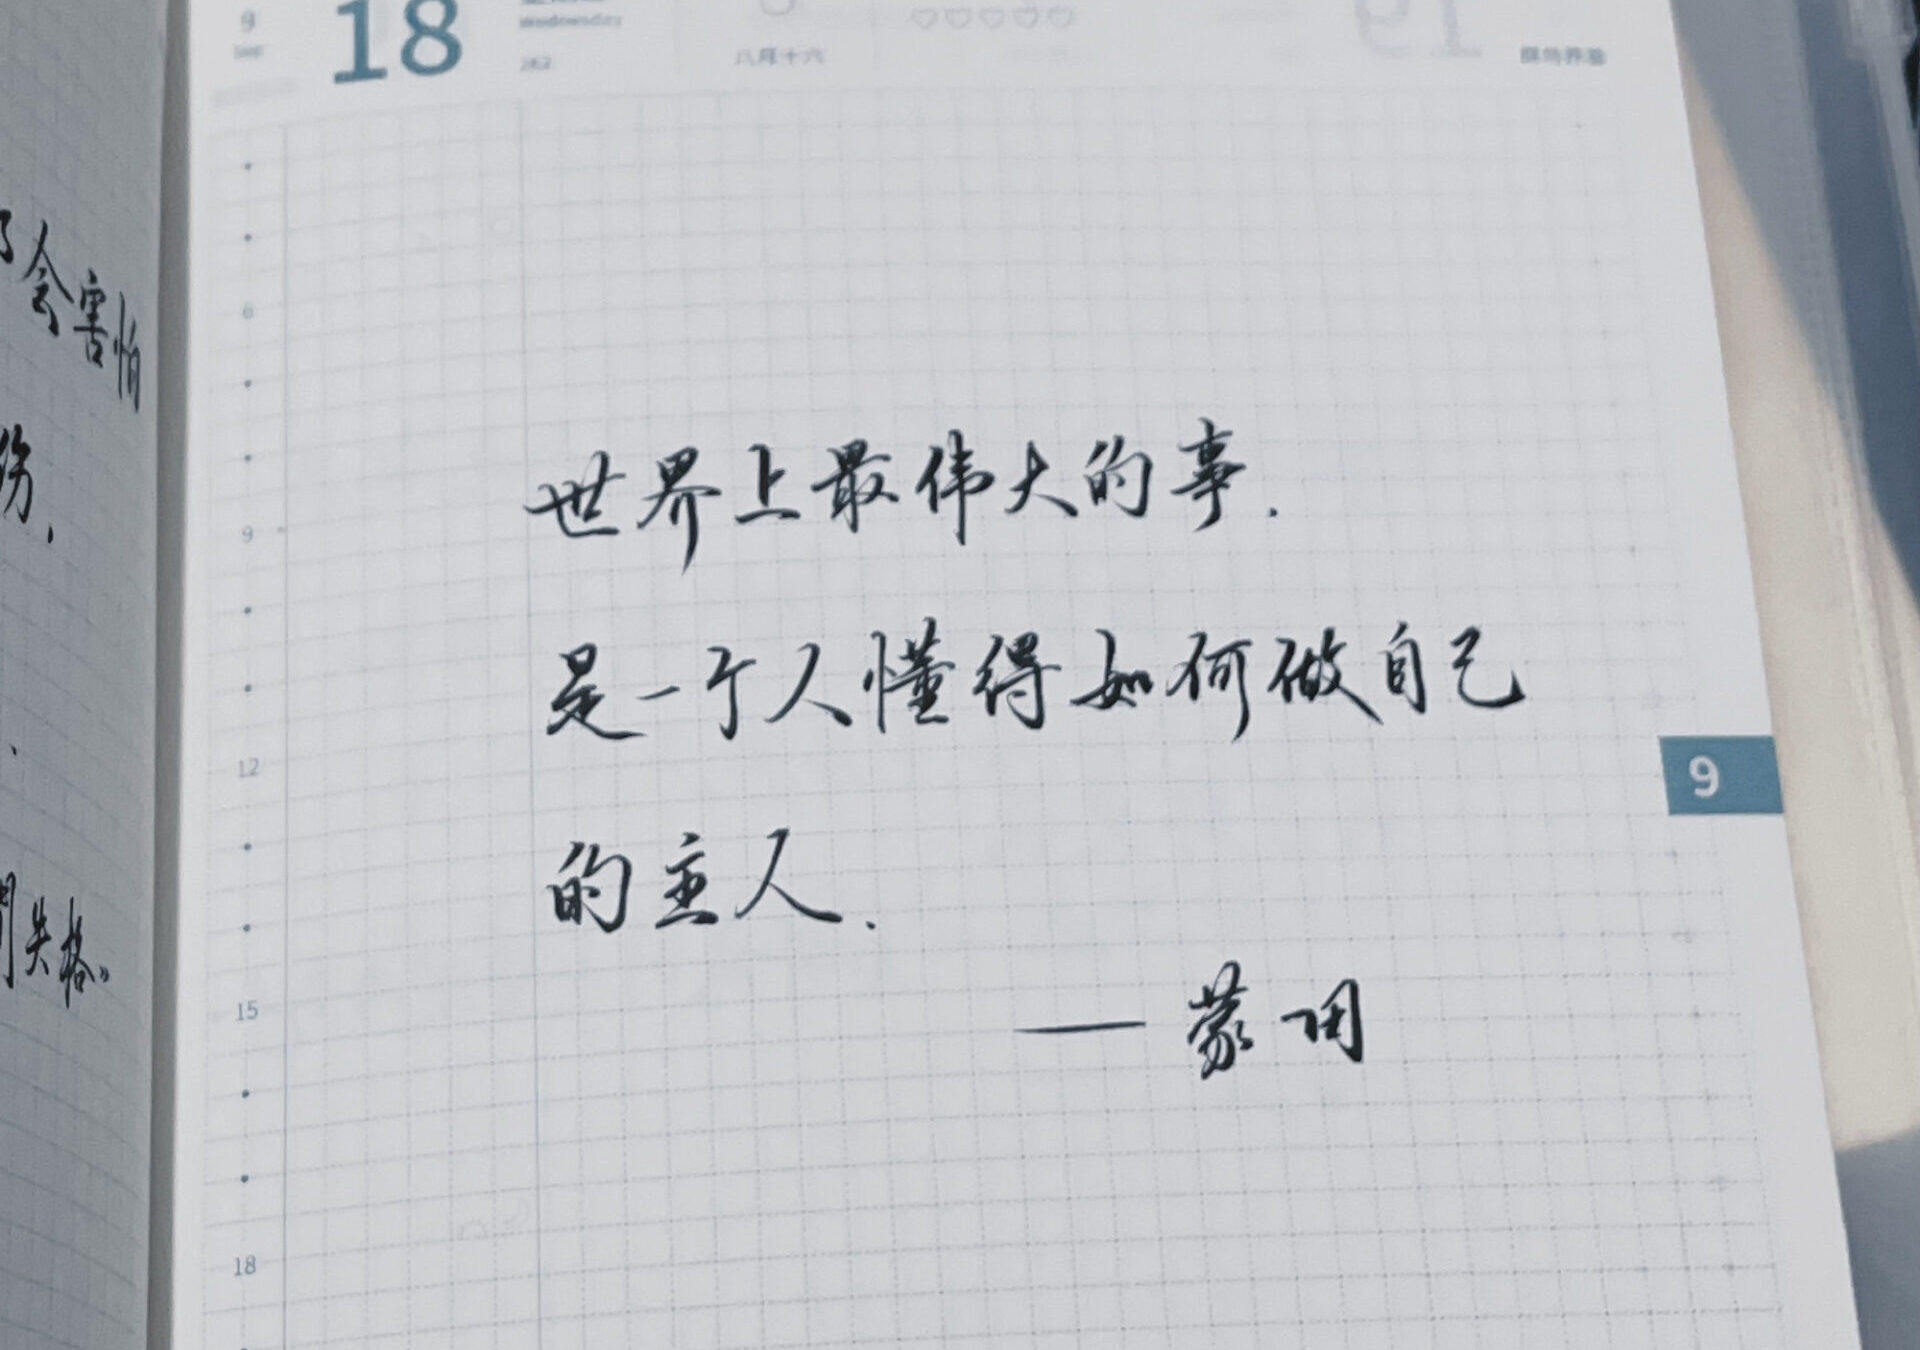 9
18
Wednesday
262
八月十六
世界上最伟大的事.
是一个人懂得如何做自己
的主人.
—— 蒙田
6
9
12
15
18
9
会害怕
伤.
失格》